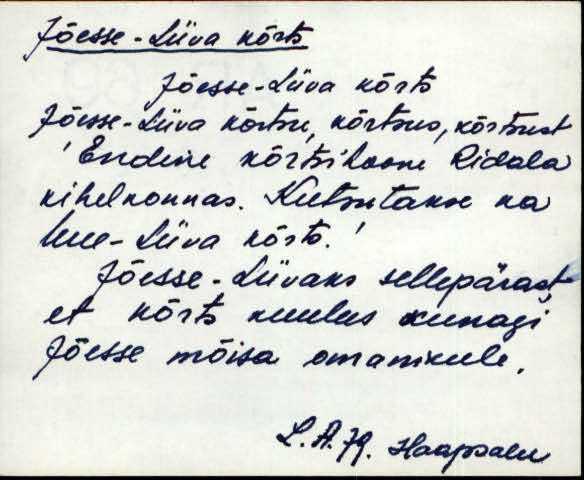 Jõesse-Liiva kõrts
Jõesse-Liiva kõrts
Jõesse-Liiva kõrtsu, kõrtsus, kõrtsust
'Endine kõrtsihoone Ridala
kihelkonnas. Kutsutakse ka
Uue-Liiva kõrts.'
Jõesse-Liivaks sellepärast,
et kõrts kuulus kunagi
Jõesse mõisa omanikule.
L.A. 79. Haapsalu